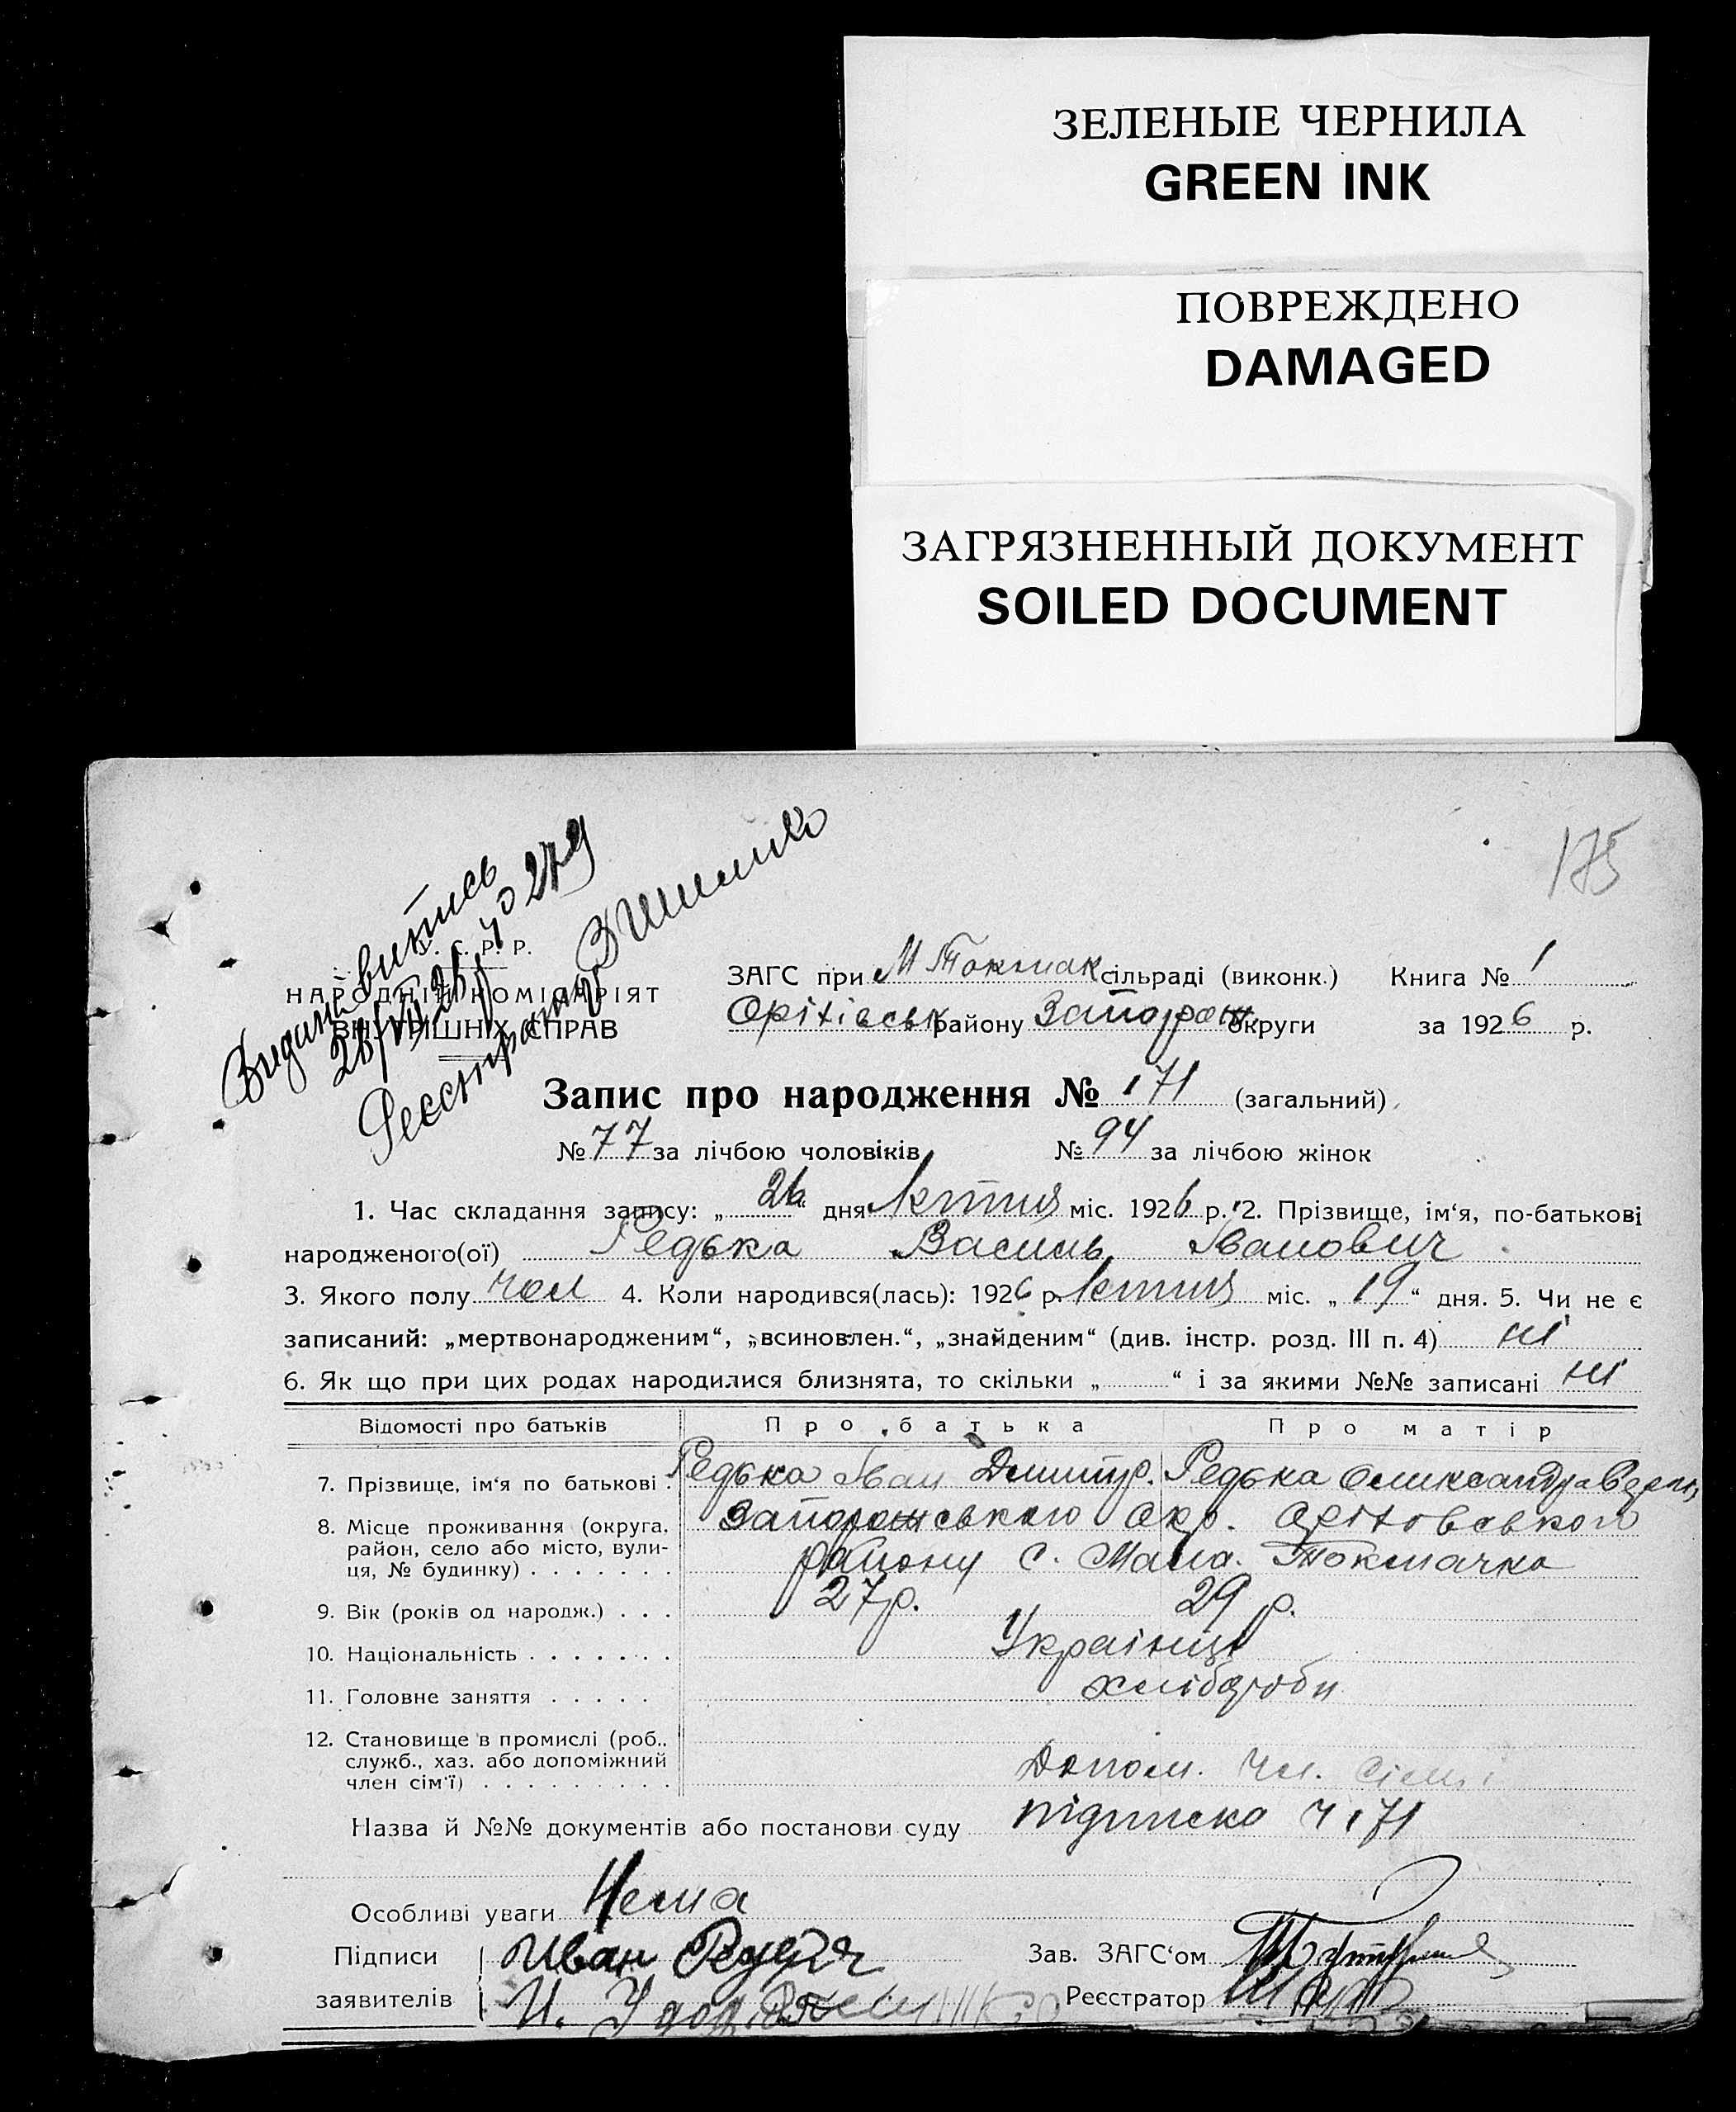 ЗЕЛЕНЫЕ ЧЕРНИЛА
GREEN INK
ПОВРЕЖДЕНО
DAMAGED
ЗАГРЯЗНЕННЫЙ ДОКУМЕНТ
SOILED DOCUMENT
175
витись
279
Реєстратор
У. С. Р. Р.
НАРОДНІЙ КОМІСАРІЯТ
ВНУТРІШНІХ СПРАВ
ЗАГС при М Токмак сільраді (виконк.) Книга № 1
Оріхівськ району Запорож округи за 1926 р.
Запис про народження № 171 (загальний)
№ 77 за лічбою чоловіків № 94 за лічбою жінок
1. Час складання запису: „26“ дня липня міс. 1926 р. 2. Прізвище, ім'я, по-батькові
народженого(ої) Редька Василь Іванович
3. Якого полу чол 4. Коли народився(лась): 1926 р. липня міс. „19“ дня. 5. Чи не є
записаний: „мертвонародженим“, „всиновлен.“, „знайденим“ (див. інстр. розд. III п. 4) ні
6. Як що при цих родах народилися близнята, то скільки „ “ і за якими №№ записані ні
Відомості про батьків Про батька Про матір
7. Прізвище, ім'я по батькові . Редька Іван Дмитр. Редька Олександра
8. Місце проживання (округа, Запорожського Окр. Оріховського
район, село або місто, вули- району с. Мала Токмачка
ця, № будинку) . . . . . . .
9. Вік (років од народж.) . . . 27 р. 29 р.
10. Національність . . . . . . . Українці
11. Головне заняття . . . . . хлібороби
12. Становище в промислі (роб.,
служб., хаз. або допоміжний
член сім'ї) . . . . . . . . . Допом. чл. сімї
Назва й №№ документів або постанови суду підписка ч 171
Особливі уваги Нема
Підписи Иван Редька Зав. ЗАГС'ом
заявителів И. Реєстратор